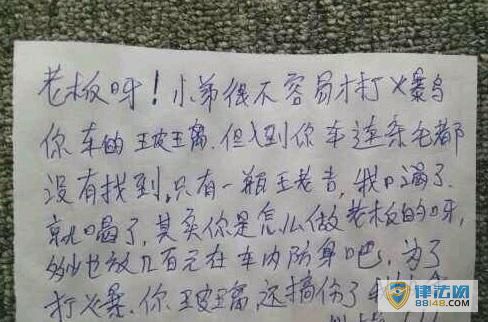 老板呀！小弟很不容易才打爆鸟
你车的玻璃，但入到你车连条毛都
没有找到，只有一瓶王老吉，我口渴了.
就喝了，其实你是怎么做老板的呀，
多少也放几百元在车内防身吧，为了
打爆.你玻璃，还搞伤了
律法网
88148.COM